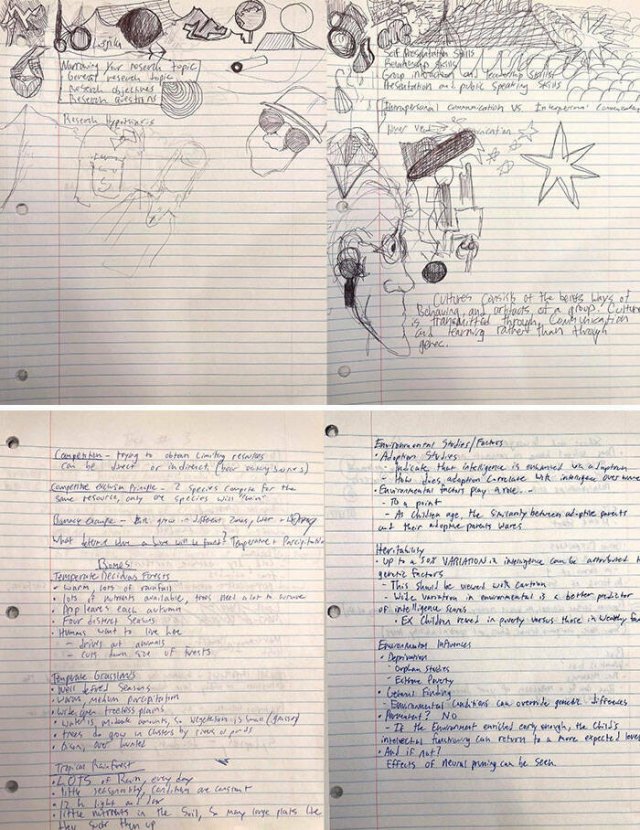 Narrowing Your research topic
General research topic
Research objectives
Research questions
Research Hypothesis
Self Presentation Skills
Relationship Skills
Group interaction and leadership skills
Presentation and public speaking skills
Intrapersonal Communication VS. Interpersonal
Cultures consist of the beliefs ways of
Behaving, and artifacts of a group. Culture
is transmitted through Communication
and learning rather than through
genec.
Competition - trying to obtain limiting resources
can be direct or indirect
Competitive exclusion Principle - 2 Species compete for the
same resource, only one species will "win"
grow in different Zones,
What determines where a biome will be found? Temperature + Precipitation
Biomes
Temperate Deciduous Forests
• warm, lots of rainfall
• lots of nutrients available, trees need a lot to survive
• Drop leaves each autumn
• Four distinct Seasons
• Humans want to live here
- drives out animals
- cuts down size of forests
Temperate Grasslands
• Well defined Seasons
• warm, medium precipitation
• wide open treeless plains
• water is moderate amounts, so vegetation is small (grasses)
• trees do grow in clusters by rivers or ponds
• Bison, over hunted
Tropical Rainforest
• LOTS of Rain, every day
• little seasonality, conditions are constant
• 12 h light
• little nutrients in the Soil, so many large plants
Environmental Studies/Factors
• Adoption Studies
- Indicate that intelligence is enhanced via adoption
- How does adoption correlate with intelligence over
• Environmental factors play a role...
- To a point
- As children age, the similarity between adoptive parents
and their adoptive parents wanes
Heritability
• up to a 50% VARIATION in intelligence can be attributed to
genetic factors
- This should be viewed with caution
- Wide variation in environmental is a better predictor
of intelligence scores
• Ex Children reared in poverty versus those in wealthy
Environmental Influences
• Deprivation
- Orphan studies
- Extreme Poverty
• General Finding
- Environmental Conditions can override genetic differences
• Permanent? NO
- If the Environment enriched early enough, the Child's
intellectual functioning can return to a more expected level
• And if not?
Effects of neural pruning can be seen